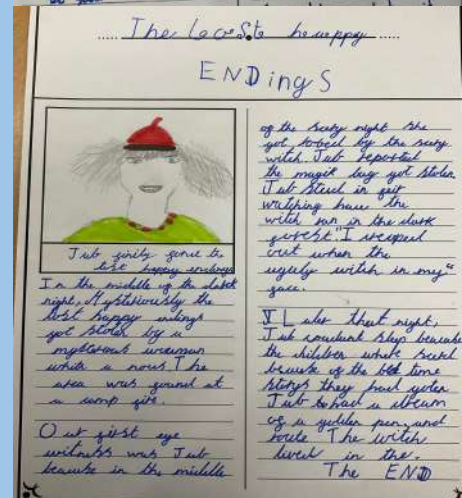 ..... The Loost heuppy .....
ENDingS
Jub finily gone to
lost happy endings
In the middle of the dark
night, Mysteriously the
lost happy endings
got stolen by a
mysterous woman
white a nous The
area was found at
a camp fire.
Out first eye
witness was Jub
beause in the middle
of the scary night she
got robed by the scary
witch. Jub reported
the magik bag got stolen
Jub steud in geit
watching haw the
witch ran in the dark
forest. "I weeped
out when the
uguly witch in my"
face.
Later that night,
Jub couldunt slep beacuse
the children where scerd
becuse of the bed time
storys they had goten
Jub had a dream
of a golden pen, and
rote The witch
lived in the.
The END